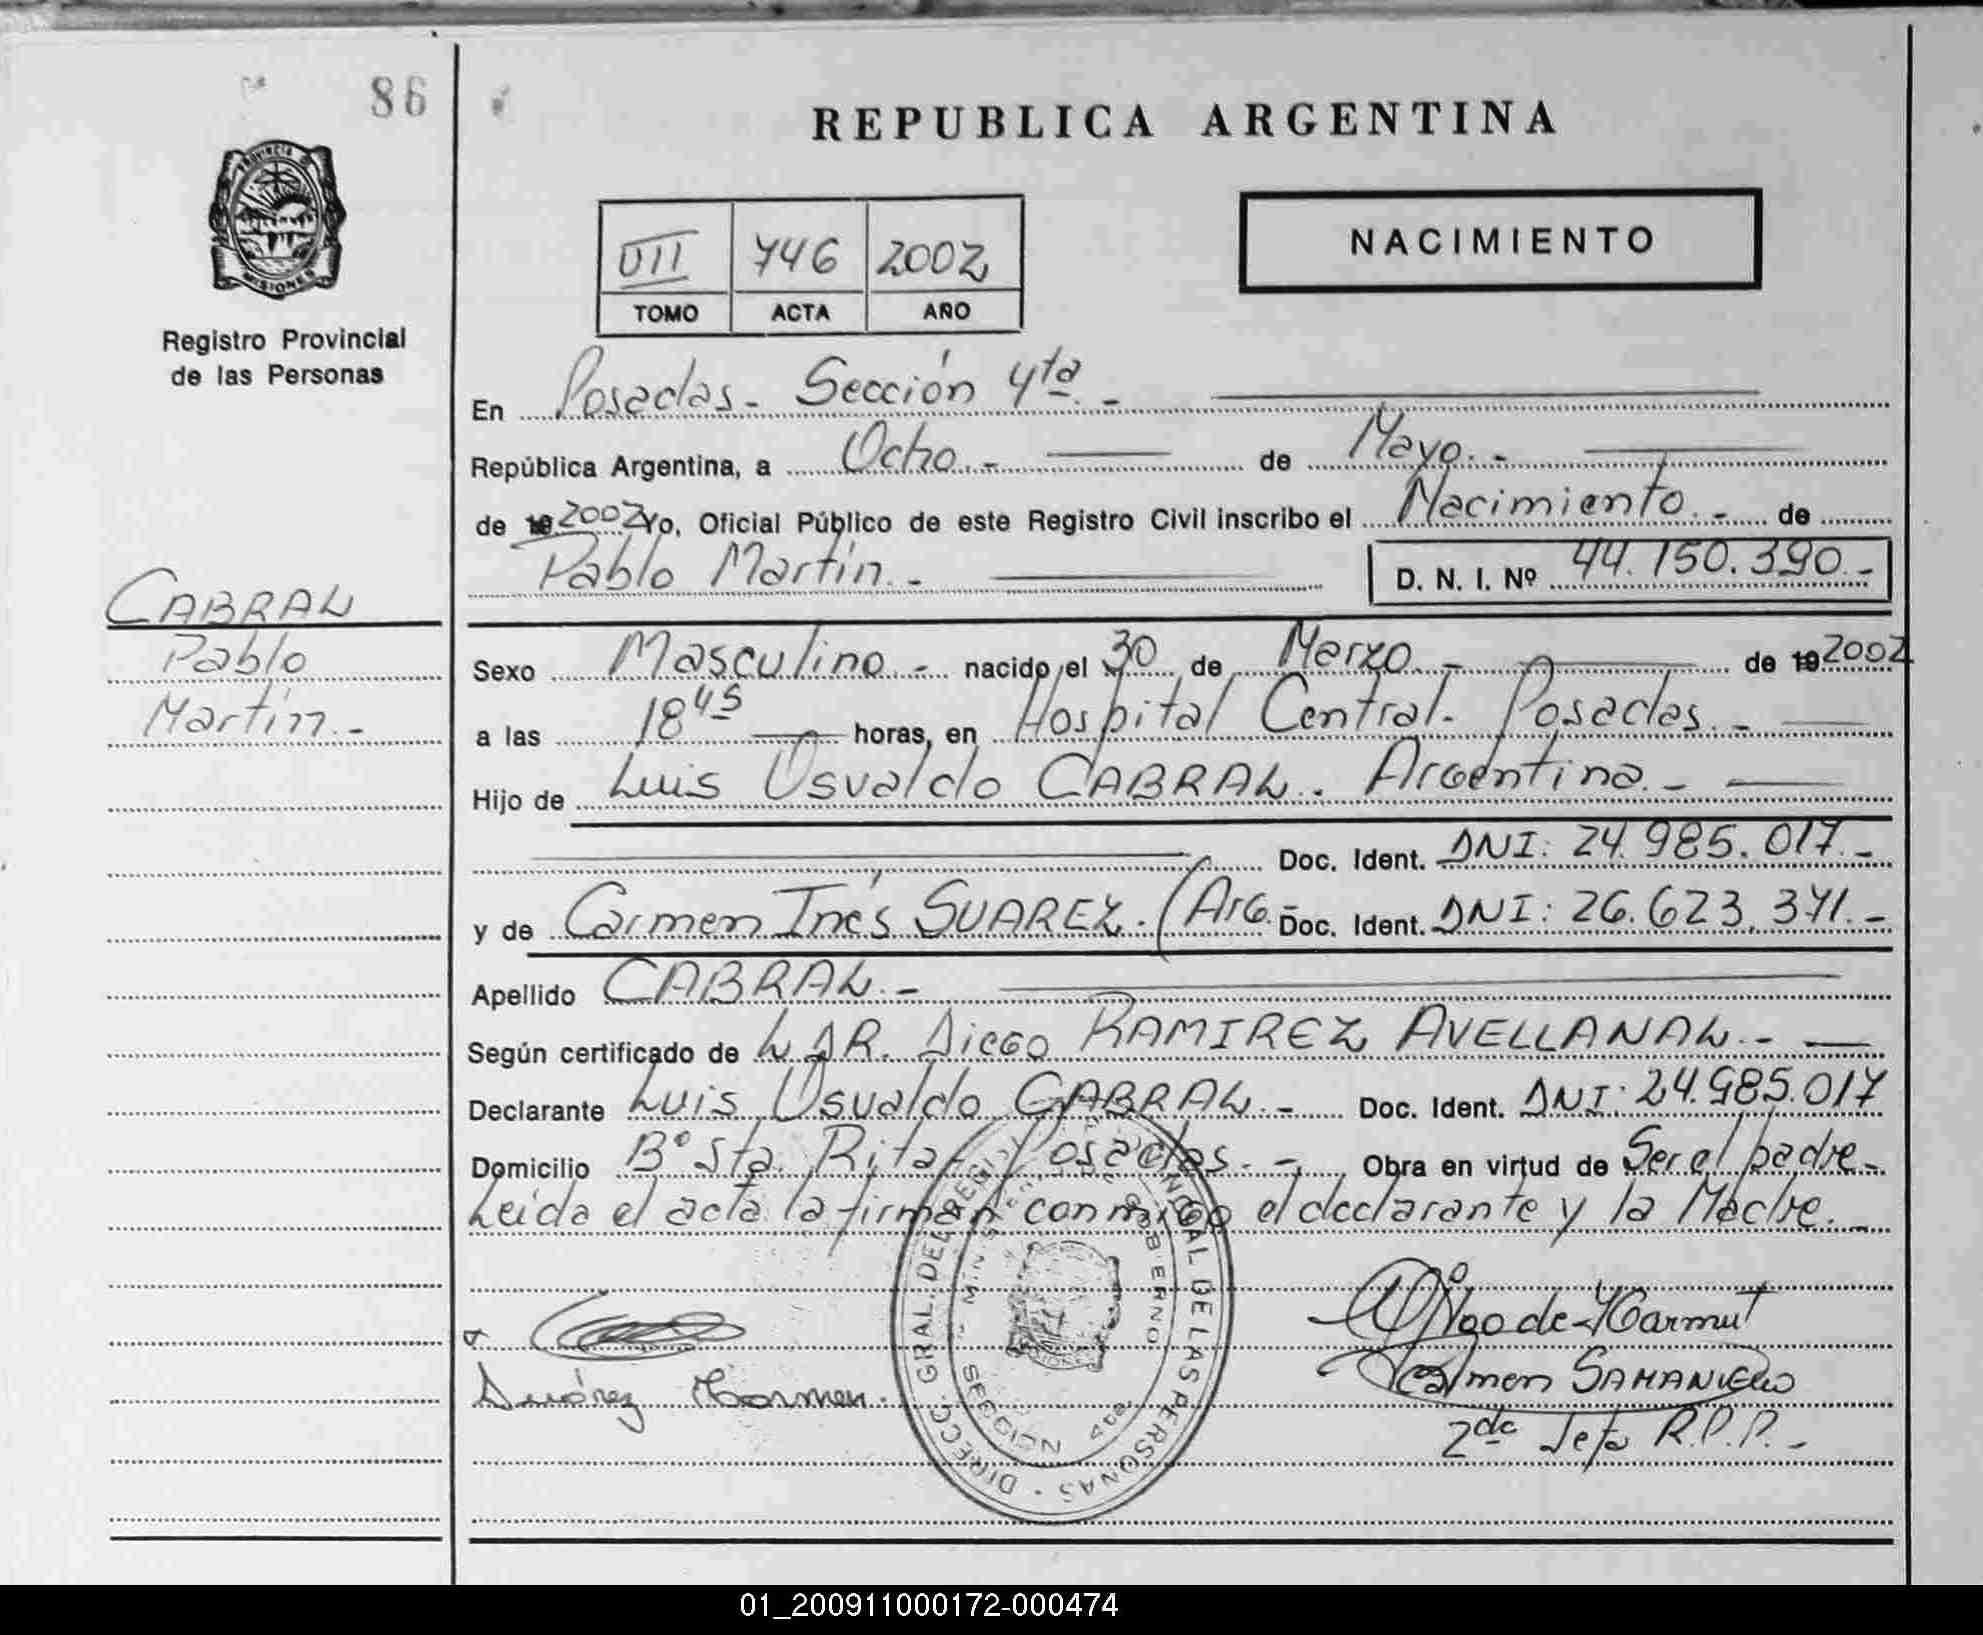 86
REPUBLICA ARGENTINA
PROVINCIA D
MISIONES
Registro Provincial
de las Personas
VII 746 2002
TOMO ACTA AÑO
NACIMIENTO
En Posadas.- Sección 4ta.-
República Argentina, a Ocho.- de Mayo.-
de 19 2002 Yo, Oficial Público de este Registro Civil inscribo el Nacimiento.- de
Pablo Martín.- D. N. I. Nº 44.150.390.-
CABRAL
Pablo
Martín.-
Sexo Masculino.- nacido el 30 de Marzo.- de 19 2002
a las 18 45 horas, en Hospital Central. Posadas.-
Hijo de Luis Osvaldo CABRAL. Argentino.-
Doc. Ident. DNI: 24.985.017.-
y de Carmen Inés SUAREZ. (Arg.- Doc. Ident. DNI: 26.623.371.-
Apellido CABRAL.-
Según certificado de L DR. Diego RAMIREZ AVELLANAL.-
Declarante Luis Osvaldo CABRAL.- Doc. Ident. DNI: 24.985.017
Domicilio Bº Sta. Rita.- Posadas.- Obra en virtud de Ser el padre.-
Leida el acta la firman conmigo el declarante y la Madre.-
Suárez Carmen.
Carmen SAMANIEGO
2da Jefa R.P.P.-
DIRECC. GRAL. DEL REGI NCIAL DE LAS PERSONAS
MIN GOBIERNO
SECCION 4ta
01_200911000172-000474